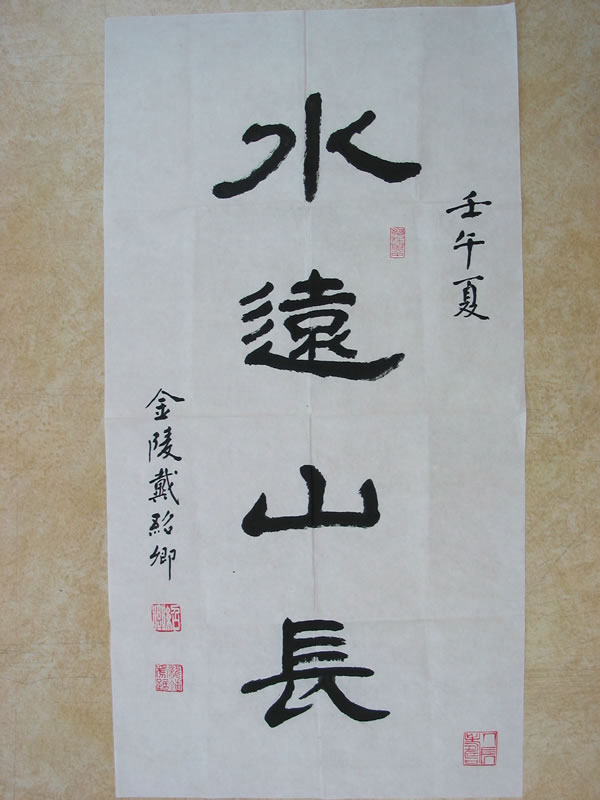 壬午夏
水遠山長
金陵戴紹卿